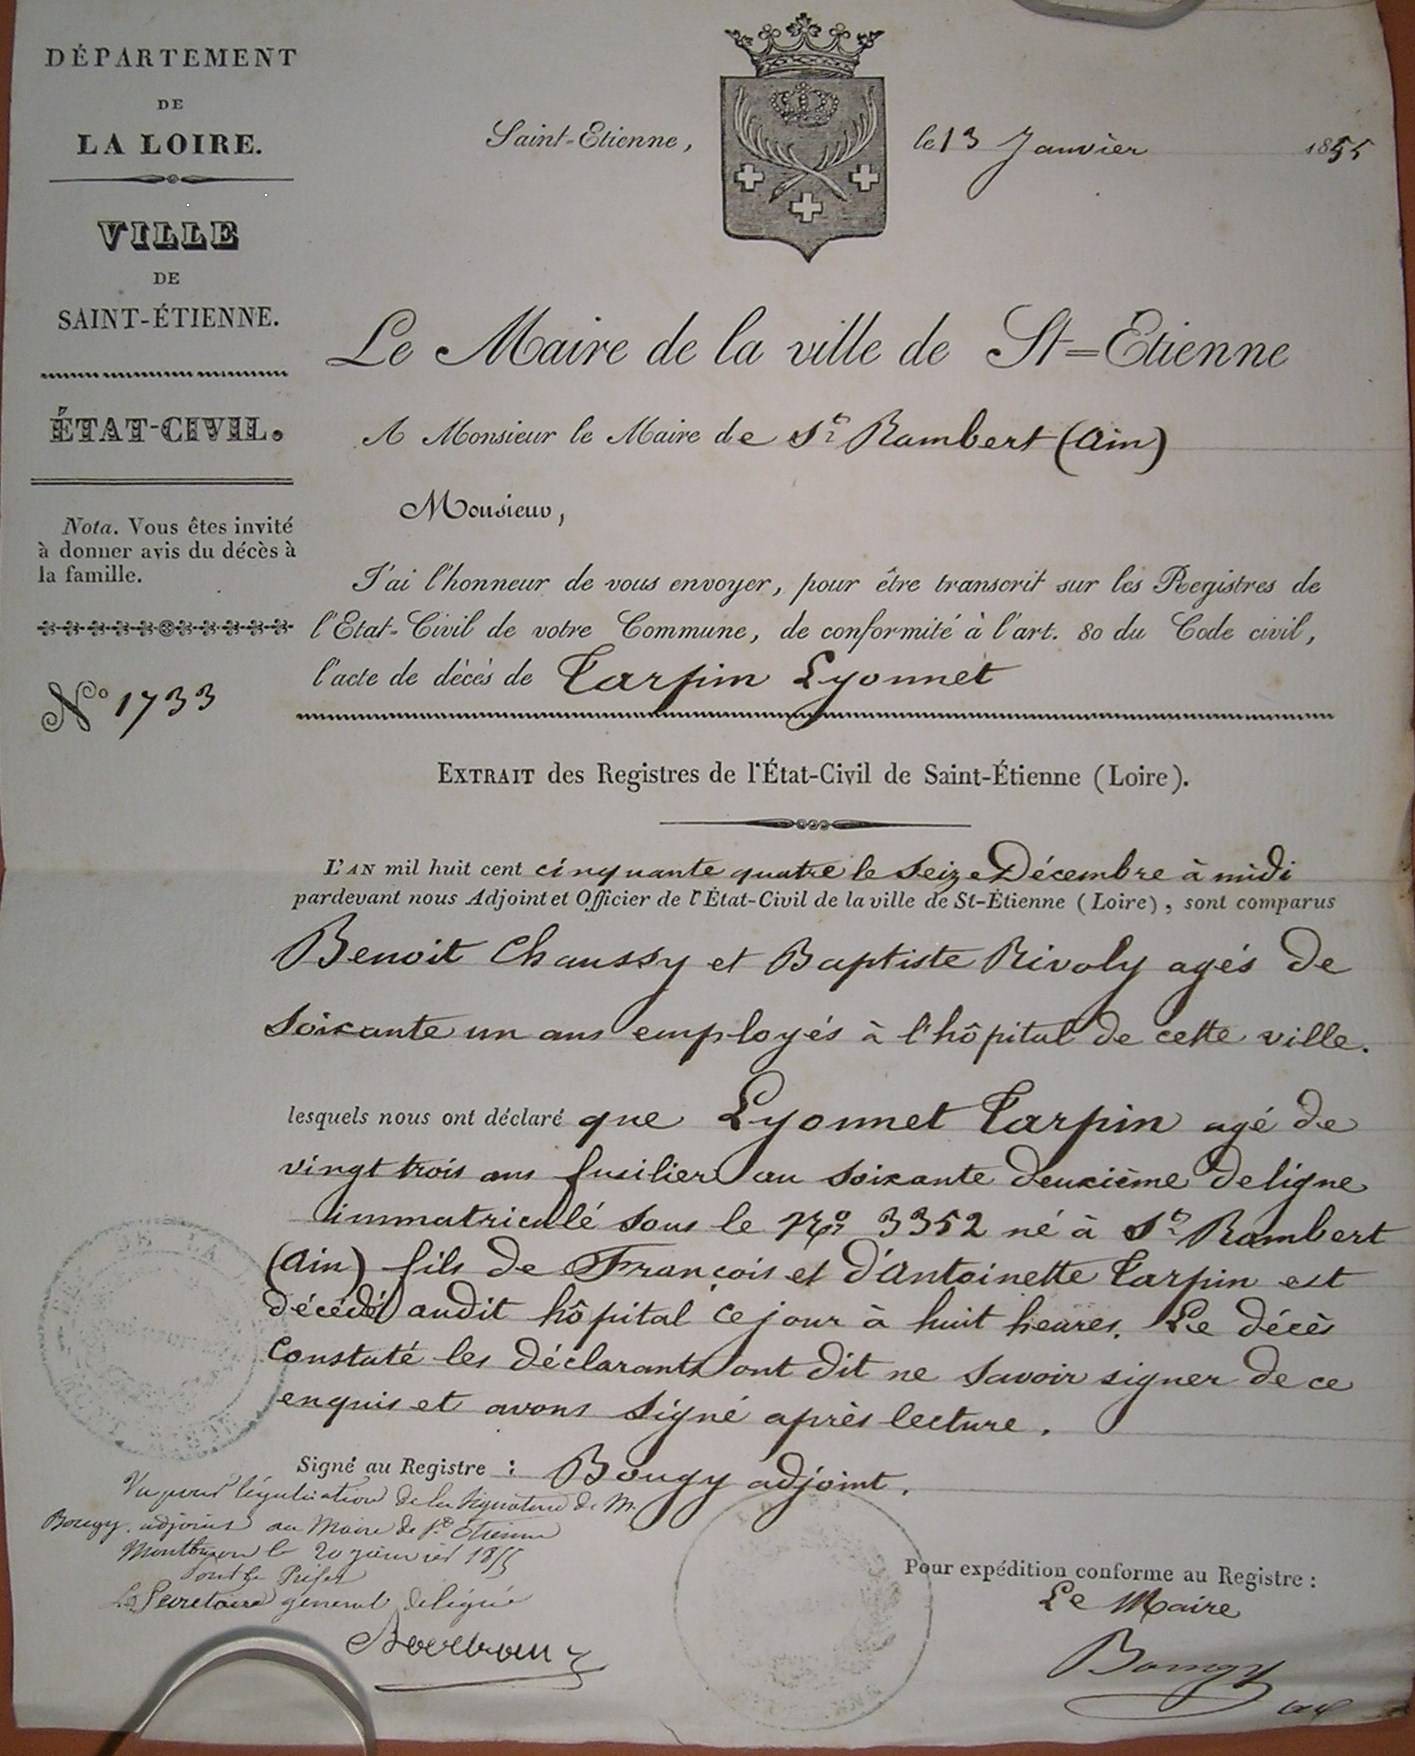 DÉPARTEMENT
DE
LA LOIRE.
VILLE
DE
SAINT-ÉTIENNE.
ÉTAT-CIVIL.
Nota. Vous êtes invité
à donner avis du décès à
la famille.
No 1733
Saint-Etienne, le 13 Janvier 1855
Le Maire de la ville de St=Etienne
A Monsieur le Maire de St Rambert (Ain)
Monsieur,
J'ai l'honneur de vous envoyer, pour être transcrit sur les Registres de
l'Etat-Civil de votre Commune, de conformité à l'art. 80 du Code civil,
l'acte de décès de Tarpin Lyonnet
EXTRAIT des Registres de l'État-Civil de Saint-Étienne (Loire).
L'AN mil huit cent cinquante quatre le seize Décembre à midi
pardevant nous Adjoint et Officier de l'État-Civil de la ville de St-Étienne (Loire), sont comparus
Benoit Chaussy et Baptiste Rivoly agés de
soixante un ans employés à l'hôpital de cette ville.
lesquels nous ont déclaré que Lyonnet Tarpin agé de
vingt trois ans fusilier au soixante deuxième de ligne
immatriculé sous le No 3352 né à St Rambert
(Ain) fils de François et d'Antoinette Tarpin est
décédé audit hôpital ce jour à huit heures. Le décès
constaté les déclarants ont dit ne savoir signer de ce
enquis et avons signé après lecture.
Signé au Registre : Bougy adjoint.
Vu pour légalisation de la signature de M.
Bougy, adjoint au Maire de St Etienne
Montbrison le 20 janvier 1855
Pour le Préfet
Le Secretaire general délégué
Pour expédition conforme au Registre :
Le Maire
Bougy